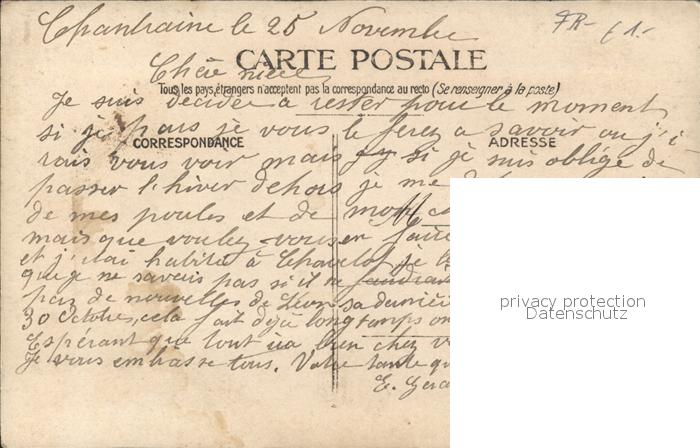 Chantraine le 25 Novembre
FR- 61-
CARTE POSTALE
Chère nièce
Tous les pays étrangers n'acceptent pas la correspondance au recto (Se renseigner à la poste)
Je suis décidée à rester pour le moment
si je pars je vous le ferez a savoir ou j'i
CORRESPONDANCE
ADRESSE
rais vous voir mais si je suis obligé de
passer l'hiver dehors je me
de mes poules et de mon
mais que voulez-vous en faire
et j'irai habiter à Chavelot je
que je ne savais pas si il ne faudrait
pas de nouvelles de Léon sa dernière
30 Octobre, cela fait déjà longtemps on
Espérant que tout va bien chez v
Je vous embrasse tous. Votre tante qu
E. Gera
privacy protection
Datenschutz